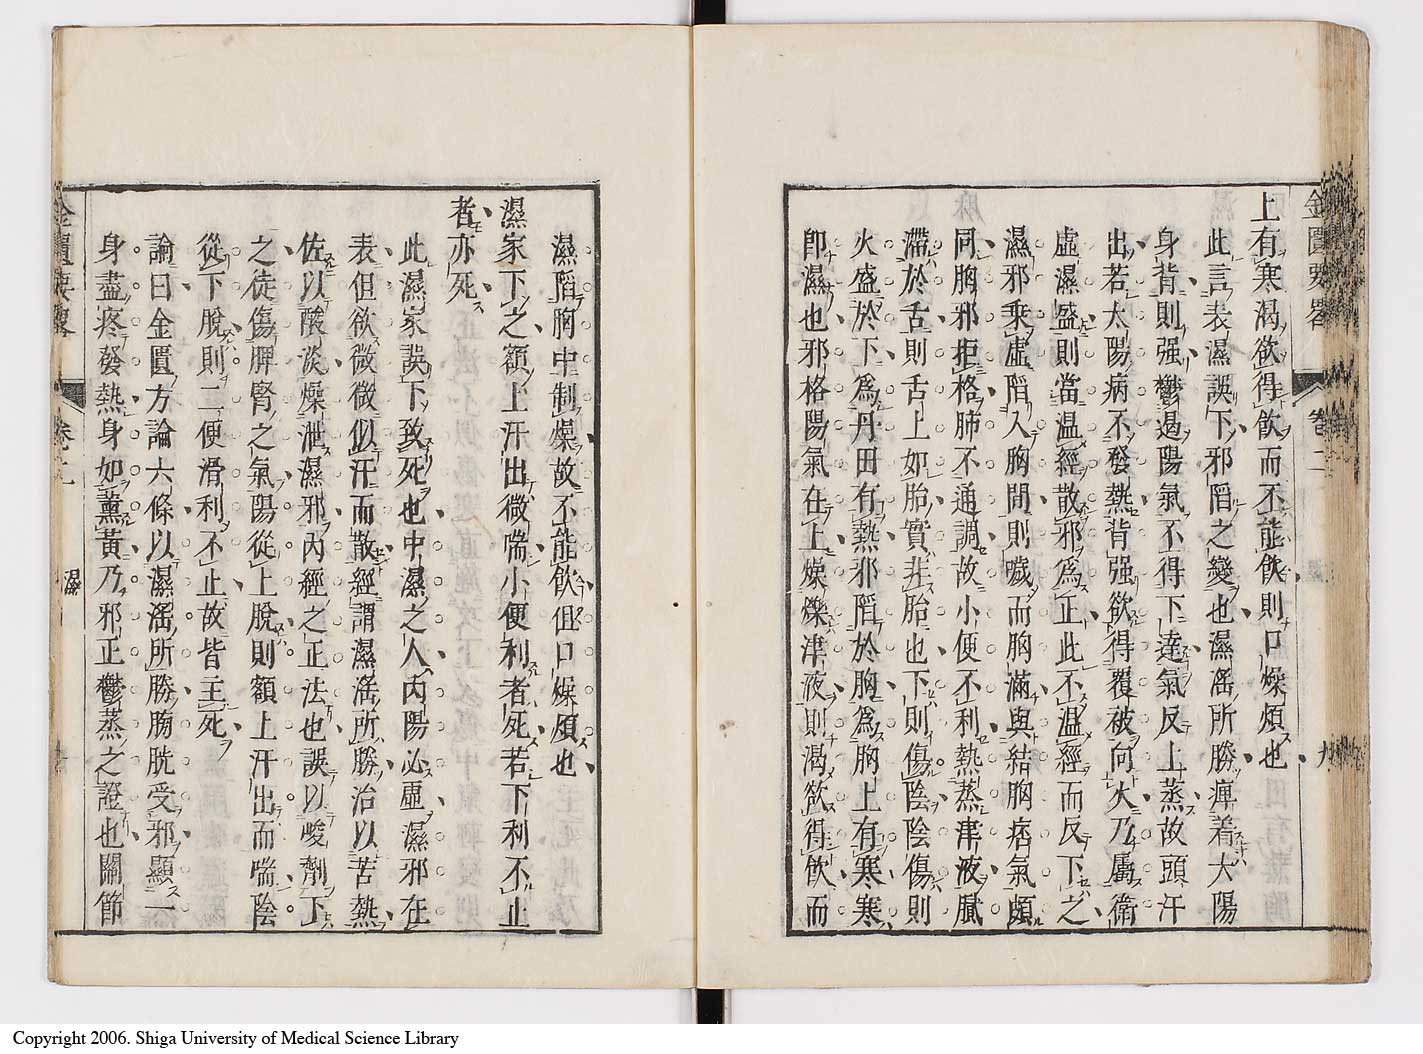 金匱要畧 卷二 濕 九
上有寒渴欲得飲而不能飲則口燥煩也
此言表濕誤下邪陷之變也濕滛所勝痺着太陽
身背則强鬱遏陽氣不得下達氣反上蒸故頭汗
出若太陽病不發熱背强欲得覆被向火乃屬衛
虛濕盛則當温經散邪爲正此不温經而反下之
濕邪乗虛陷入胸間則噦而胸滿與結胸痞氣頗
同胸邪拒格肺不通調故小便不利熱蒸津液膩
滯於舌則舌上如胎實非胎也下則傷陰陰傷則
火盛於下爲丹田有熱邪陷於胸爲胸上有寒寒
卽濕也邪格陽氣在上燥爍津液則渴欲得飲而
濕陷胸中制燥故不能飲但口燥煩也
濕家下之額上汗出微喘小便利者死若下利不止
者亦死
此濕家誤下致死也中濕之人內陽必虛濕邪在
表但欲微微似汗而散經謂濕滛所勝治以苦熱
佐以酸淡燥泄濕邪內經之正法也誤以峻劑下
之徒傷脾腎之氣陽從上脫則額上汗出而喘陰
從下脫則二便滑利不止故皆主死
論曰金匱方論六條以濕滛所勝膀胱受邪顯一
身盡疼發熱身如薰黃乃邪正鬱蒸之證也關節
金匱要畧 濕